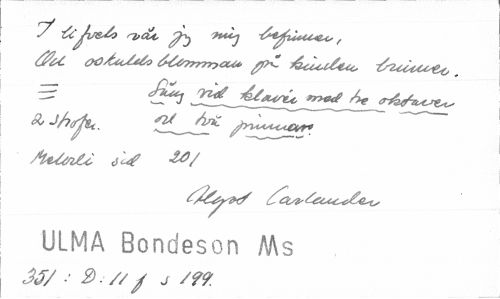 I lifvets vår jag mig befinner,
Och oskuldsblomman på kinden brinner.
Sång vid klavér med tre oktaver
2 strofer. och två pinnar.
Melodi sid 201
Carlander
ULMA Bondeson Ms
351 : D : 11 f s 199.